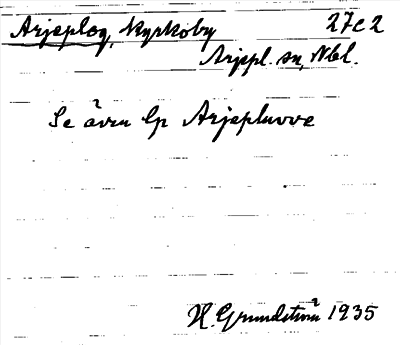 Arjeplog, kyrkoby 27c2
Arjepl. sn, Nbl.
Se även lp Arjepluovve
H. Grundström 1935